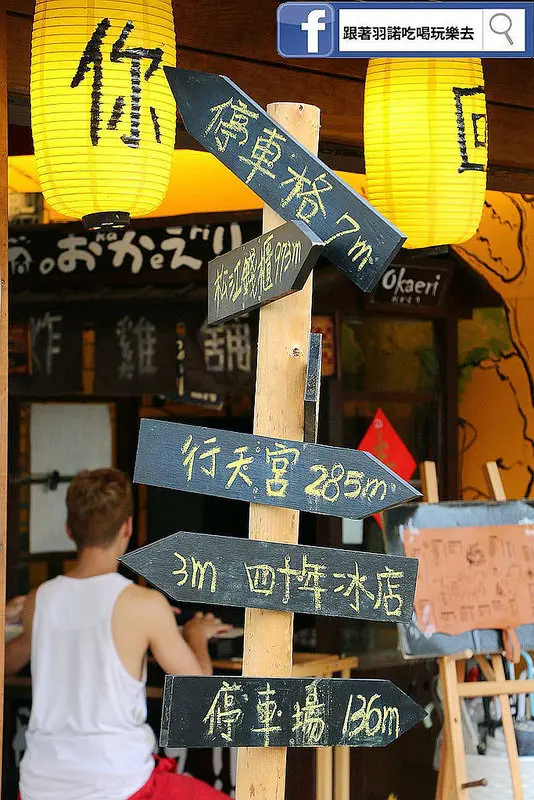 跟著羽諾吃喝玩樂去
你
回
停車格 7m
松江錢櫃 973m
おかえり
Okaeri
炸雞舖
行天宮 285m
3m 四十年冰店
停車場 136m